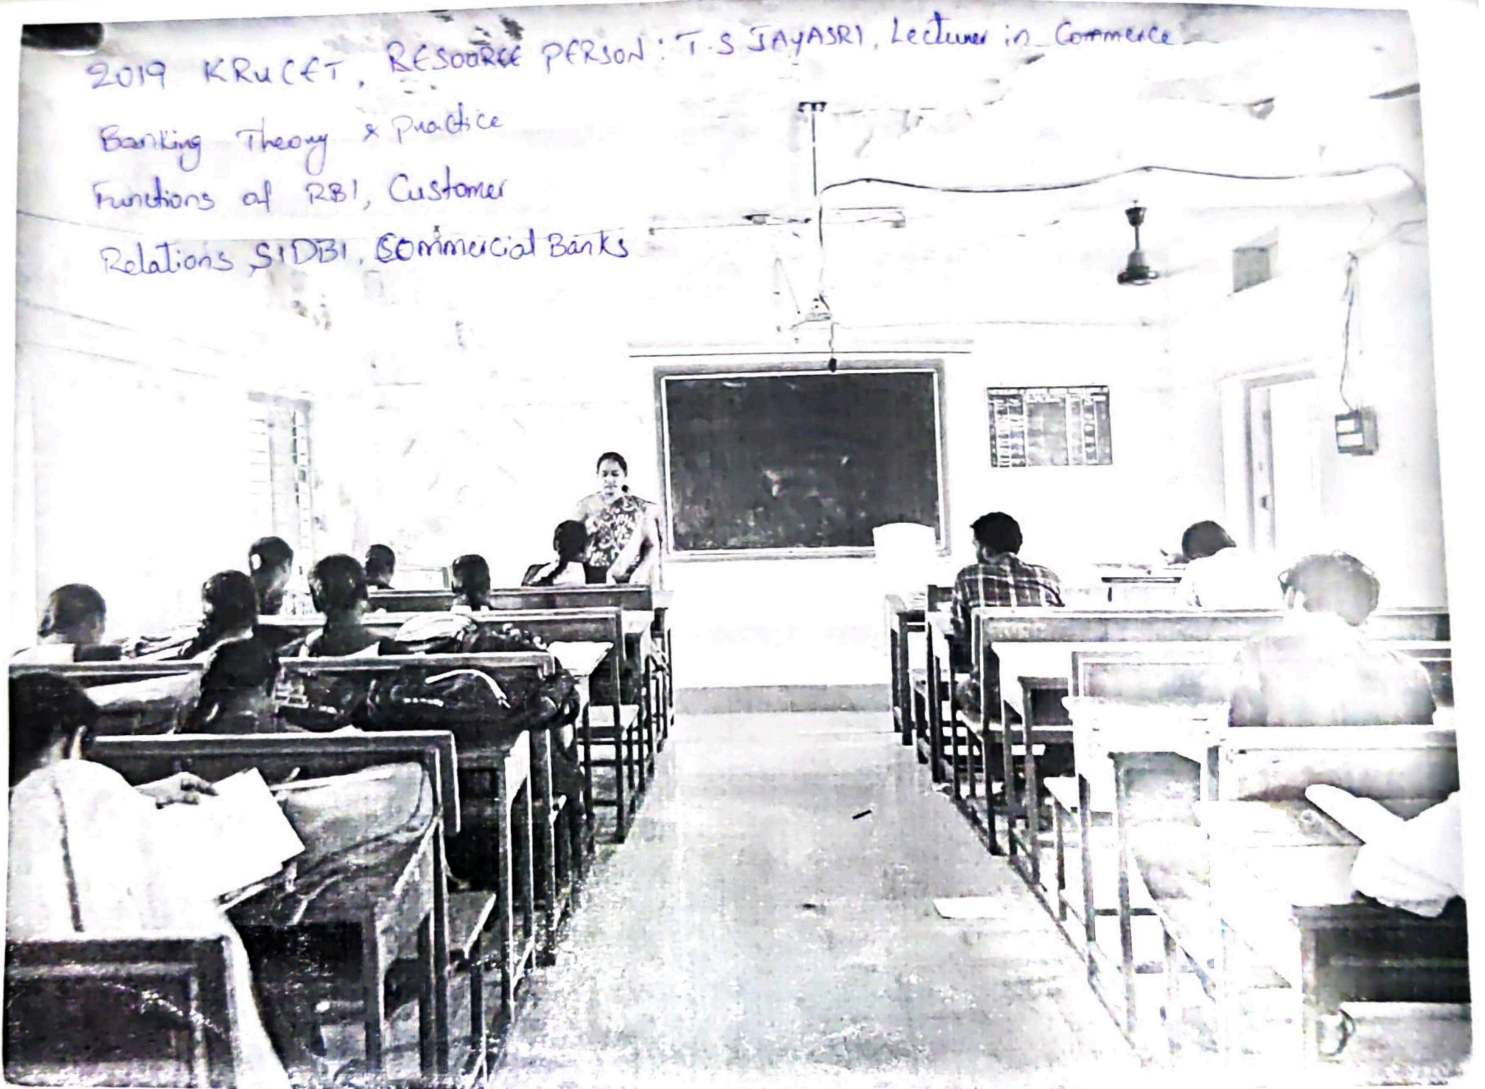 2019 KRUCET, RESOURCE PERSON: T.S JAYASRI, Lecturer in Commerce
Banking Theory & Practice
Functions of RBI, Customer
Relations, SIDBI, Commercial Banks